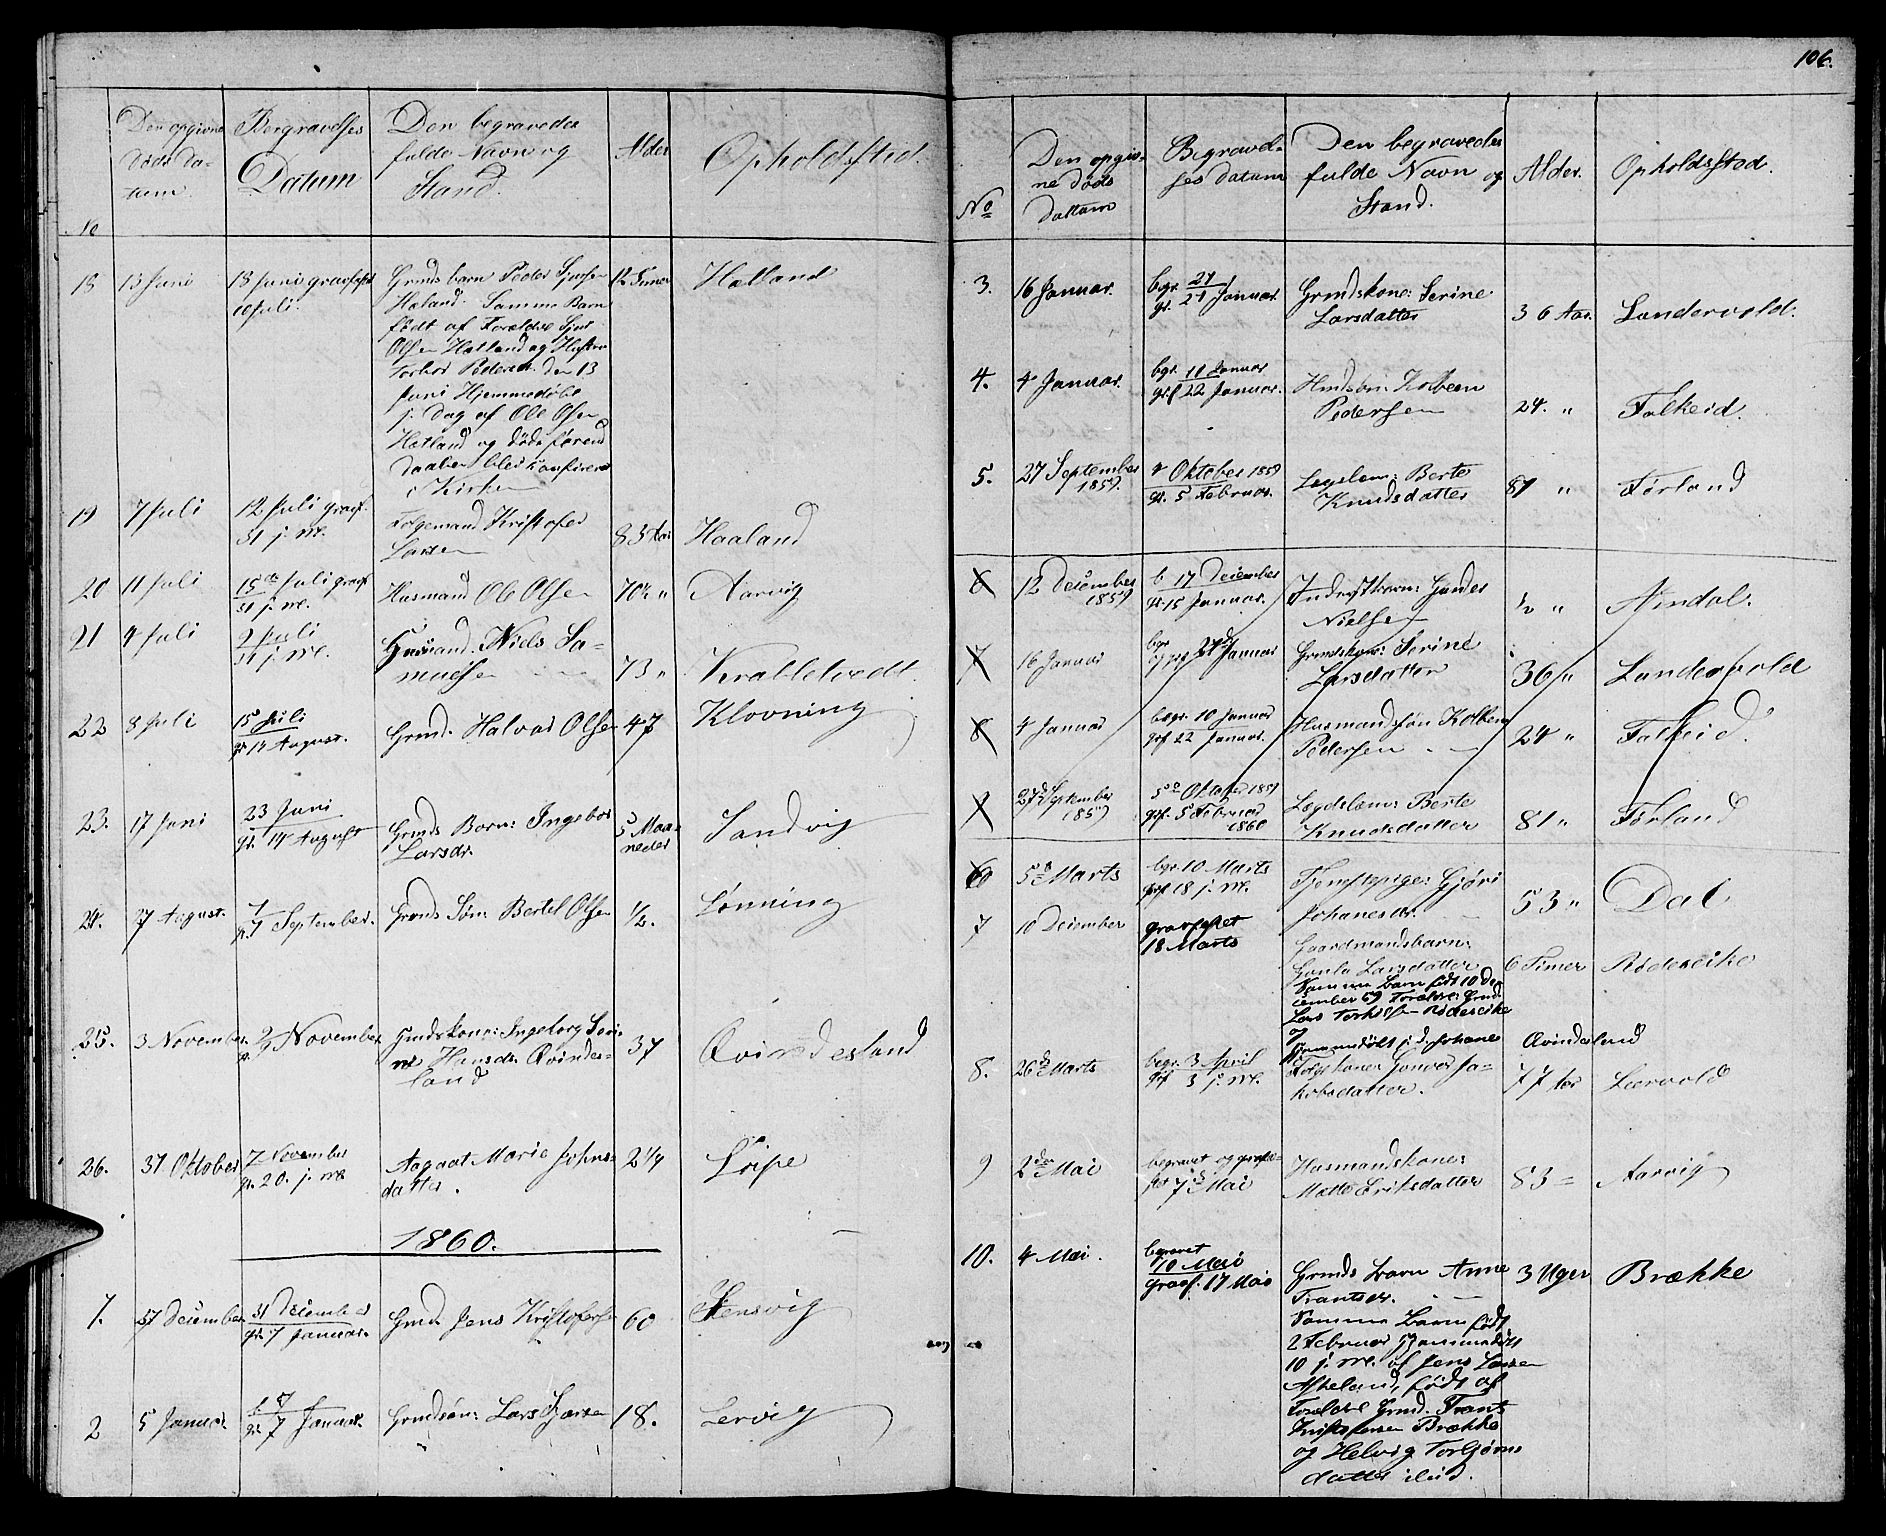 106.
No
Den opgivne
Døds da-
tum.
Bergravelses
Datum
Den begravedes
fulde Navn og
Stand.
Alder
Opholdssted.
18
13 Juni
18 Juni gravfæstet
10 Juli.
Grmds barn Peder Sjursen
Hatland. Samme Barn
født af Forældre Sjur
Olsen Hatland og Hustru
Pedersd. den 13
Juni Hjemmedøbt
s. Dag af Ole Olsen
Hatland og døde førend
Daaben blev
i Kirken
12 Timer
Hatland
19
7 Juli
12 Juli gravf.
31 j. M.
Folgemand Kristofer
Larsen
83 Aar
Haaland
20
11 Juli
15de Juli gravf
31 j. M.
Husmand Ole Olsen
70½ "
Aarvig
21
4 Juli
2 Juli
31 j. M.
Husmand. Niels Sa-
muelsen
73 "
Krabbetvedt.
22
8 Juli
15 Juli
gr. 14 August.
Grmd. Halvor Olsen
47
Klovning
23.
17 Juni
23 Juni
gr. 14 August
Grmds Barn: Ingebor
Larsdr.
5 Maa-
neder
Sandvig
24.
27 August.
1
gr. 7 September.
Grmds Søn: Bertel Olsen
½.
Lønning
25.
3 November
9 November
Grmdskone: Ingeborg Seri-
ne Hansdr. Qvindes-
land
37
Qvindesland
26.
31 Oktober
7 November
gr. 20. j. M.
Aagaat Marie Johns-
datter.
2 1/4
Lipe
1860.
1.
31 December
gr. 7 Januar.
Grmd. Jens Kristofersen
60
Stensvig
2
5 Januar
gr. 7 Januar.
Grmdsøn: Lars
18.
Lervig
No
Den opgiv-
ne Døds
dattum
Begravel-
ses datum
Den begravedes
fulde Navn og
Stand.
Alder.
Opholdsstad.
3.
16 Januar.
begr. 21
gr. 21 Januar.
Grmdskone: Serine
Larsdatter
36 Aar.
Landervold.
4.
4 Januar.
begr. 10 Januar
grf 22 Januar.
Kolbeen
Pedersen
24. "
Falkeid.
5.
27 September
1859.
4 Oktober 1859
gr. 5 Februar.
Legdslem: Berte
Knudsdatter
81 "
Førland
6
12 December
1859
b 17 December
gr. 15 Januar.
Inderstbarn: Gunder
Nielsen
½ "
Amdal.
7
16 Januar
begr
21 Januar
Grmdskone: Serine
Larsdatter
36 "
Landervold
8
4 Januar
begr. 10 Januar
grf 22 Januar.
Husmandssøn Kolben
Pedersen
24 "
Falkeid.
9
27de September
1859
5te Oktober 1859
grf. 5 Februar
1860
Lægdslem: Berte
Knudsdatter
81 "
Førland
6
5te Marts
bgr. 10 Marts
grf 18 j. M.
Tjenestepige: Gjøri
Johanesdr.
53 "
Dal
7
10 December
gravfestet
18 Marts
Gaardmandsbarn:
Gunla Larsdatter
Samme Barn født 10 De-
cember 59 Forældre: Grmd.
Lars Torkelsen Rødeseike
og
Hjemmedøbt s. d. Johane
Qvindesland
6 Timer
Rødeseike
8.
26de Marts
begr. 3 April
grf 3 j. M.
Folgekone: Gunver Ja-
kobsdatter.
77 Aar
Leervold
9
2den Mai
begravet og gravfæ-
stet 7de Mai
Husmandskone:
Mætte Eriksdatter
83 =
Aarvig
10.
4 Mai.
begravet
10 Mai
gravf. 17 Mai
Grmds Barn Anne
Trantsdr.
Samme Barn født
2 Februar Hjemmedøbt
10 j. M. af Jens Larsen
Askeland, født af
Forældre Grmd. Trants
Kristofersen Brække
og Helvig Torbjørns
datter ibid.
3 Uger
Brække